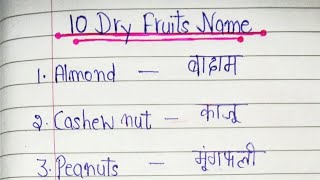 10 Dry Fruits Name
1. Almond — बादाम
2. Cashew nut — काजू
3. Peanuts — मूंगफली